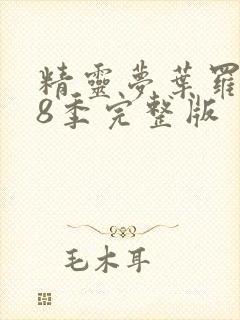 精靈夢葉羅
8季完整版
毛木耳